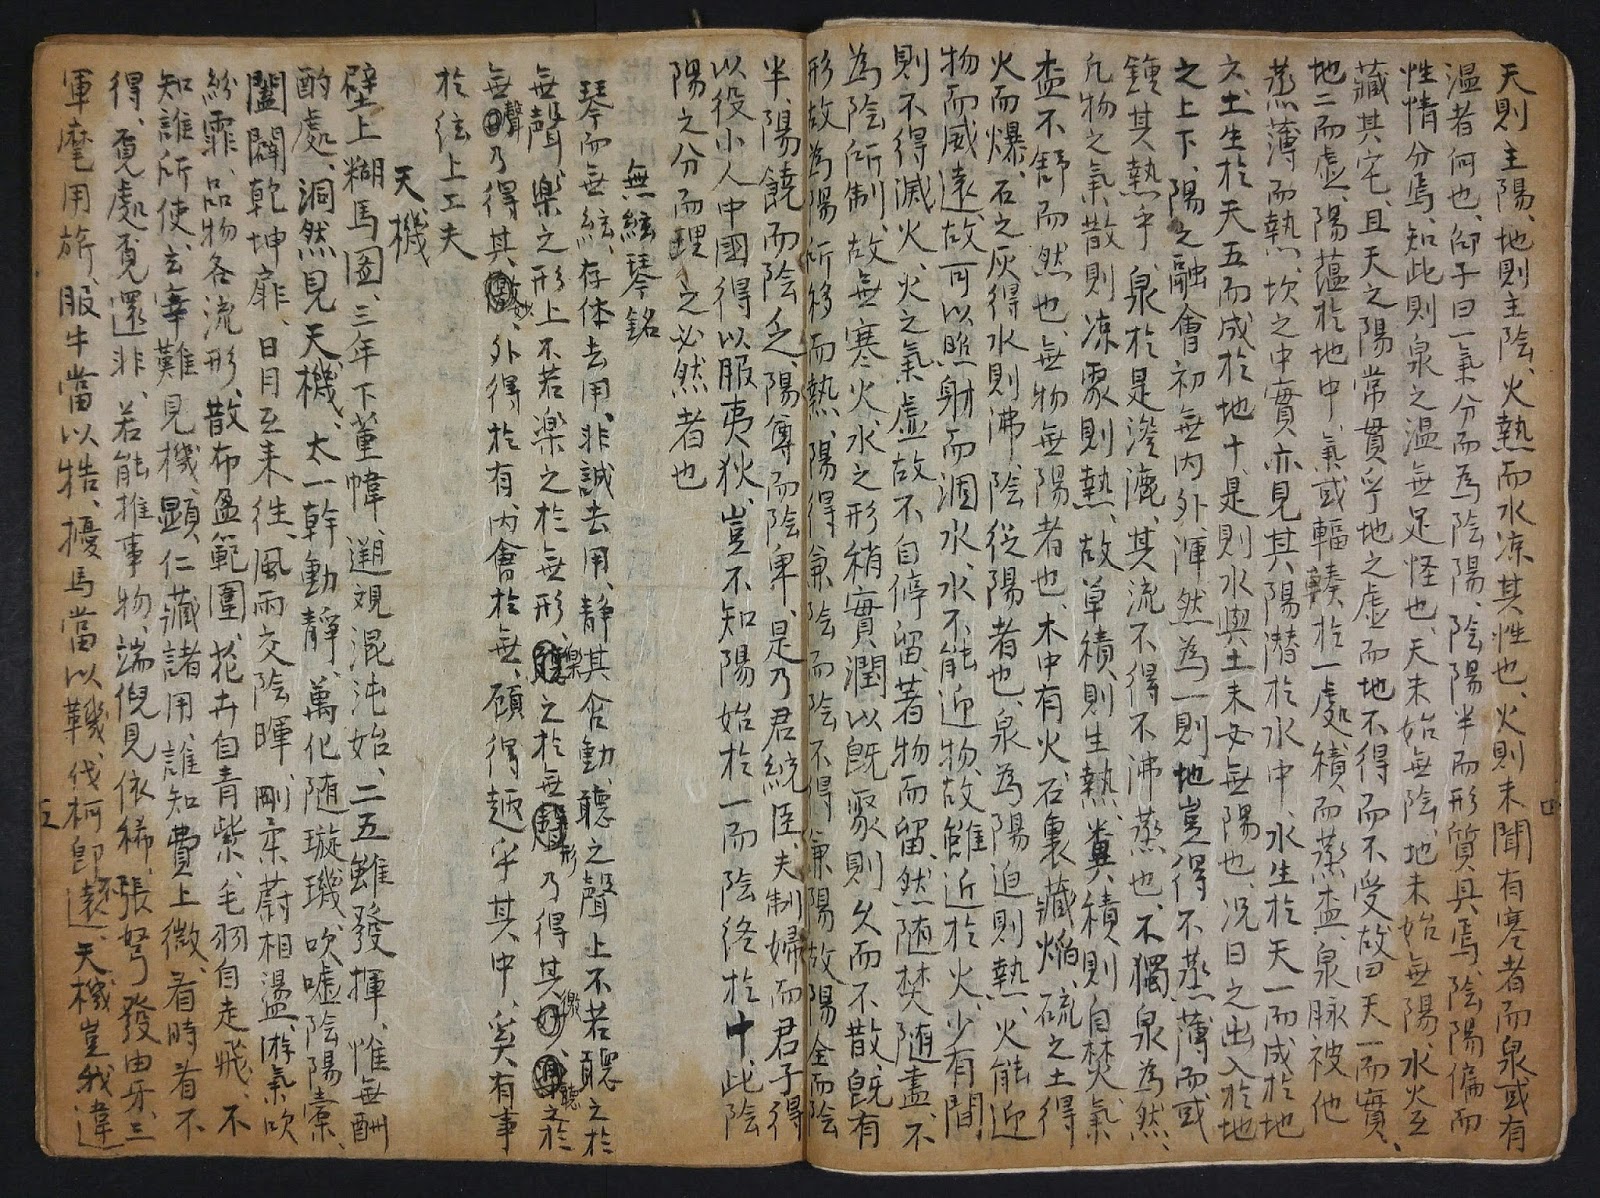 天則主陽、地則主陰、火熱而水凉其性也、火則未聞有寒者而泉或有
溫者何也、邵子曰一氣分而為陰陽、陰陽半而形質具焉、陰陽偏而
性情分焉、知此則泉之溫無足怪也、天未始無陰、地未始無陽、水火互
藏其宅、且天之陽常貫乎地之虛、而地不得而不受、故曰天一而實、
地二而虛、陽蘊於地中、氣或輻輳於一處積而蒸盍、泉脉被他
蒸薄而熱、坎之中實、亦見其陽潛於水中、水生於天一而成於地
六、土生於天五而成於地十、是則水與土未安無陽也、况日之出入於地
之上下、陽之融會初無內外、渾然為一則地豈得不蒸薄而或
鍾其熱乎、泉於是滲漉、其流不得不沸蒸也、不獨泉為然、
凡物之氣散則凉聚則熱、故草積則生熱、糞積則自焚、氣
盍不舒而然也、無物無陽者也、木中有火、石裏藏焰、硫之土得
火而爆、石之灰得水則沸、陰從陽者也、泉為陽迫則熱、火能迎
物而威遠、故可以照射而涸水、水不能迎物、故雖近於火、少有間、
則不得滅火、火之氣虛、故不自停留、著物而留、然随焚随盡、不
為陰所制、故無寒火、水之形稍實潤以旣聚則久而不散、旣有
形故為陽所移而熱、陽得兼陰而陰不得兼陽、故陽全而陰
半、陽饒而陰乏、陽尊而陰卑、是乃君統臣、夫制婦、而君子得
以役小人、中國得以服夷狄、豈不知陽始於一而陰終於十、此陰
陽之分而理之必然者也
無絃琴銘
琴而無絃、存体去用、非誠去用、靜其含動、聽之聲上不若聽之於
無聲、樂之形上不若樂之於無形、樂之於無形乃得其徼、聽之於
無聲乃得其妙、外得於有、內會於無、顧得趣乎其中、奚有事
於絃上工夫
天機
壁上糊馬圖、三年下董幃、遡觀混沌始、二五雖發揮、惟無酬
酌處、洞然見天機、太一幹動靜、萬化随璇璣、吹噓陰陽橐、
闔闢乾坤扉、日月互來徃、風雨交陰暉、剛柔蔚相盪、游氣吹
紛霏、品物各流形、散布盈範圍、花卉自青紫、毛羽自走飛、不
知誰所使、玄宰難見機、顯仁藏諸用、誰知費上微、看時看不
得、覓處覓還非、若能推事物、端倪見依稀、張弩發由牙、三
軍麾用旂、服牛當以牿、擾馬當以鞿、伐柯卽不遠、天機豈我違
四
五